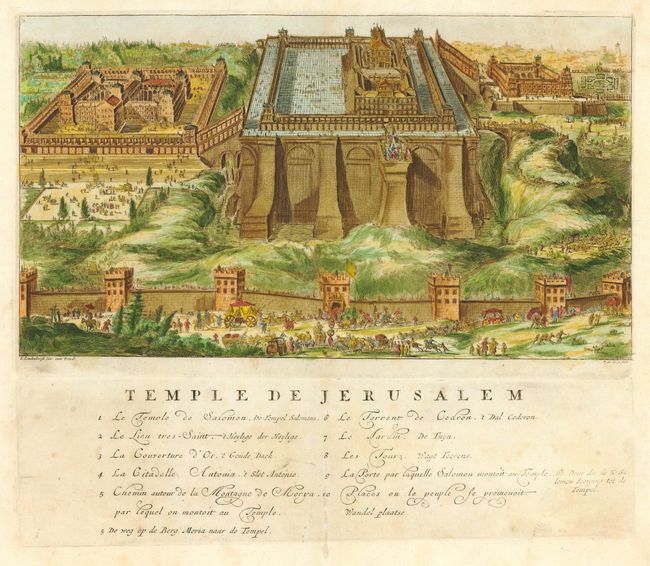 TEMPLE DE JERUSALEM
1 Le Temple de Salomon. De Tempel Salomons.
2 Le Lieu tres-Saint. 't Heylige der Heylige.
3 La Couverture d'Or. 't Goude Dack.
4 La Citadelle Antonia. 't Slot Antonio.
5 Chemin autour de la Montagne de Morya
par lequel on montoit au Temple.
5 De weg op de Berg Moria naar de Tempel.
6 Le Torrent de Cedron. 't Dal Cedoron.
7 Le Jardin. De Tuyn.
8 Les Tours. Wagt Toorens.
9 La Porte par laquelle Salomon montoit au Temple.
tot de
Tempel.
10 Places ou le peuple se promenoit.
Wandel plaatse